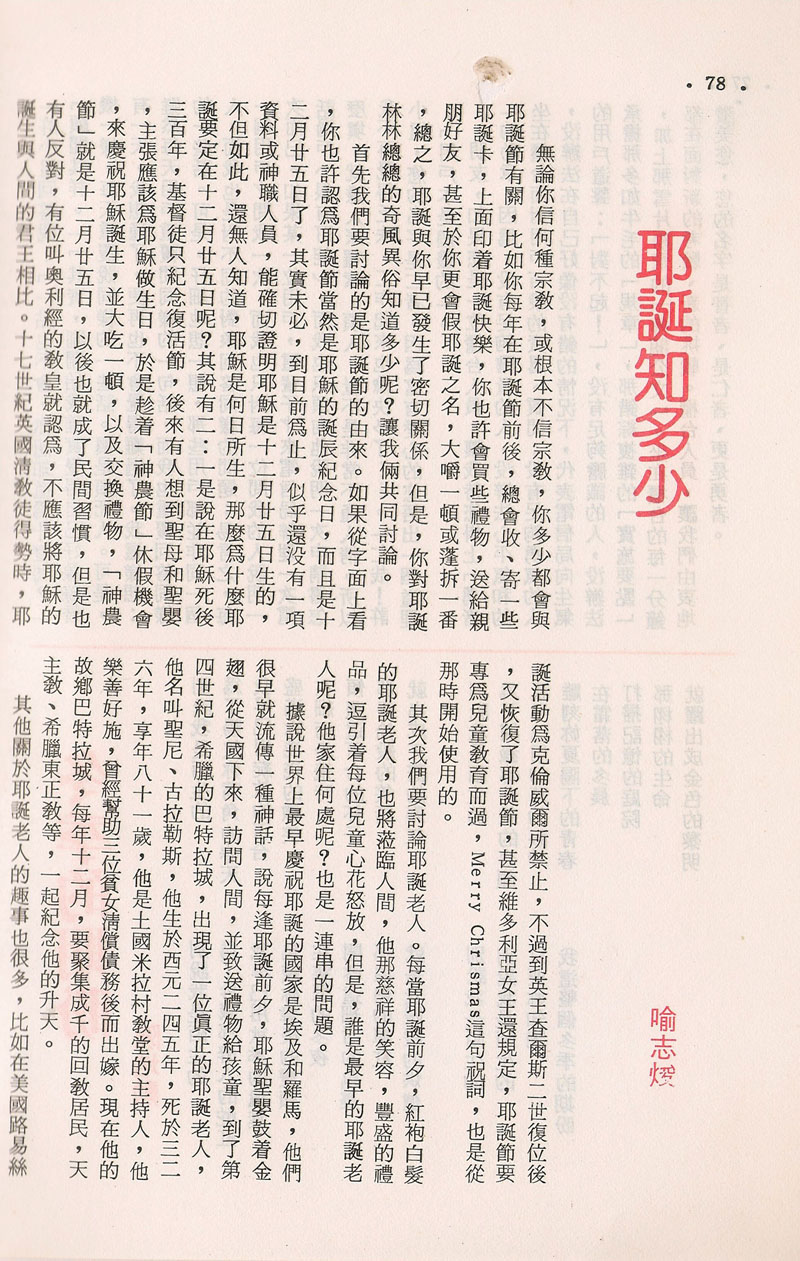 • 78 •
耶誕知多少
喻志燰
無論你信何種宗教，或根本不信宗教，你多少都會與
耶誕節有關，比如你每年在耶誕節前後，總會收、寄一些
耶誕卡，上面印着耶誕快樂，你也許會買些禮物，送給親
朋好友，甚至於你更會假耶誕之名，大嚼一頓或蓬拆一番
，總之，耶誕與你早已發生了密切關係，但是，你對耶誕
林林總總的奇風異俗知道多少呢？讓我倆共同討論。
首先我們要討論的是耶誕節的由來。如果從字面上看
，你也許認爲耶誕節當然是耶穌的誕辰紀念日，而且是十
二月廿五日了，其實未必，到目前爲止，似乎還没有一項
資料或神職人員，能確切證明耶穌是十二月廿五日生的，
不但如此，還無人知道，耶穌是何日所生，那麼爲什麼耶
誕要定在十二月廿五日呢？其說有二：一是說在耶穌死後
三百年，基督徒只紀念復活節，後來有人想到聖母和聖嬰
，主張應該爲耶穌做生日，於是趁着「神農節」休假機會
，來慶祝耶穌誕生，並大吃一頓，以及交換禮物，「神農
節」就是十二月廿五日，以後也就成了民間習慣，但是也
有人反對，有位叫奧利經的教皇就認爲，不應該將耶穌的
誕生與人間的君王相比。十七世紀英國清教徒得勢時，耶
誕活動爲克倫威爾所禁止，不過到英王查爾斯二世復位後
，又恢復了耶誕節，甚至維多利亞女王還規定，耶誕節要
專爲兒童教育而過，Merry Chrismas這句祝詞，也是從
那時開始使用的。
其次我們要討論耶誕老人。每當耶誕前夕，紅袍白髮
的耶誕老人，也將蒞臨人間，他那慈祥的笑容，豐盛的禮
品，逗引着每位兒童心花怒放，但是，誰是最早的耶誕老
人呢？他家住何處呢？也是一連串的問題。
據說世界上最早慶祝耶誕的國家是埃及和羅馬，他們
很早就流傳一種神話，說每逢耶誕前夕，耶穌聖嬰鼓着金
翅，從天國下來，訪問人間，並致送禮物給孩童，到了第
四世紀，希臘的巴特拉城，出現了一位眞正的耶誕老人，
他名叫聖尼、古拉勒斯，他生於西元二四五年，死於三二
六年，享年八十一歲，他是土國米拉村教堂的主持人，他
樂善好施，曾經幫助三位貧女淸償債務後而出嫁。現在他的
故鄉巴特拉城，每年十二月，要聚集成千的回教居民，天
主教、希臘東正教等，一起紀念他的升天。
其他關於耶誕老人的趣事也很多，比如在美國路易絲